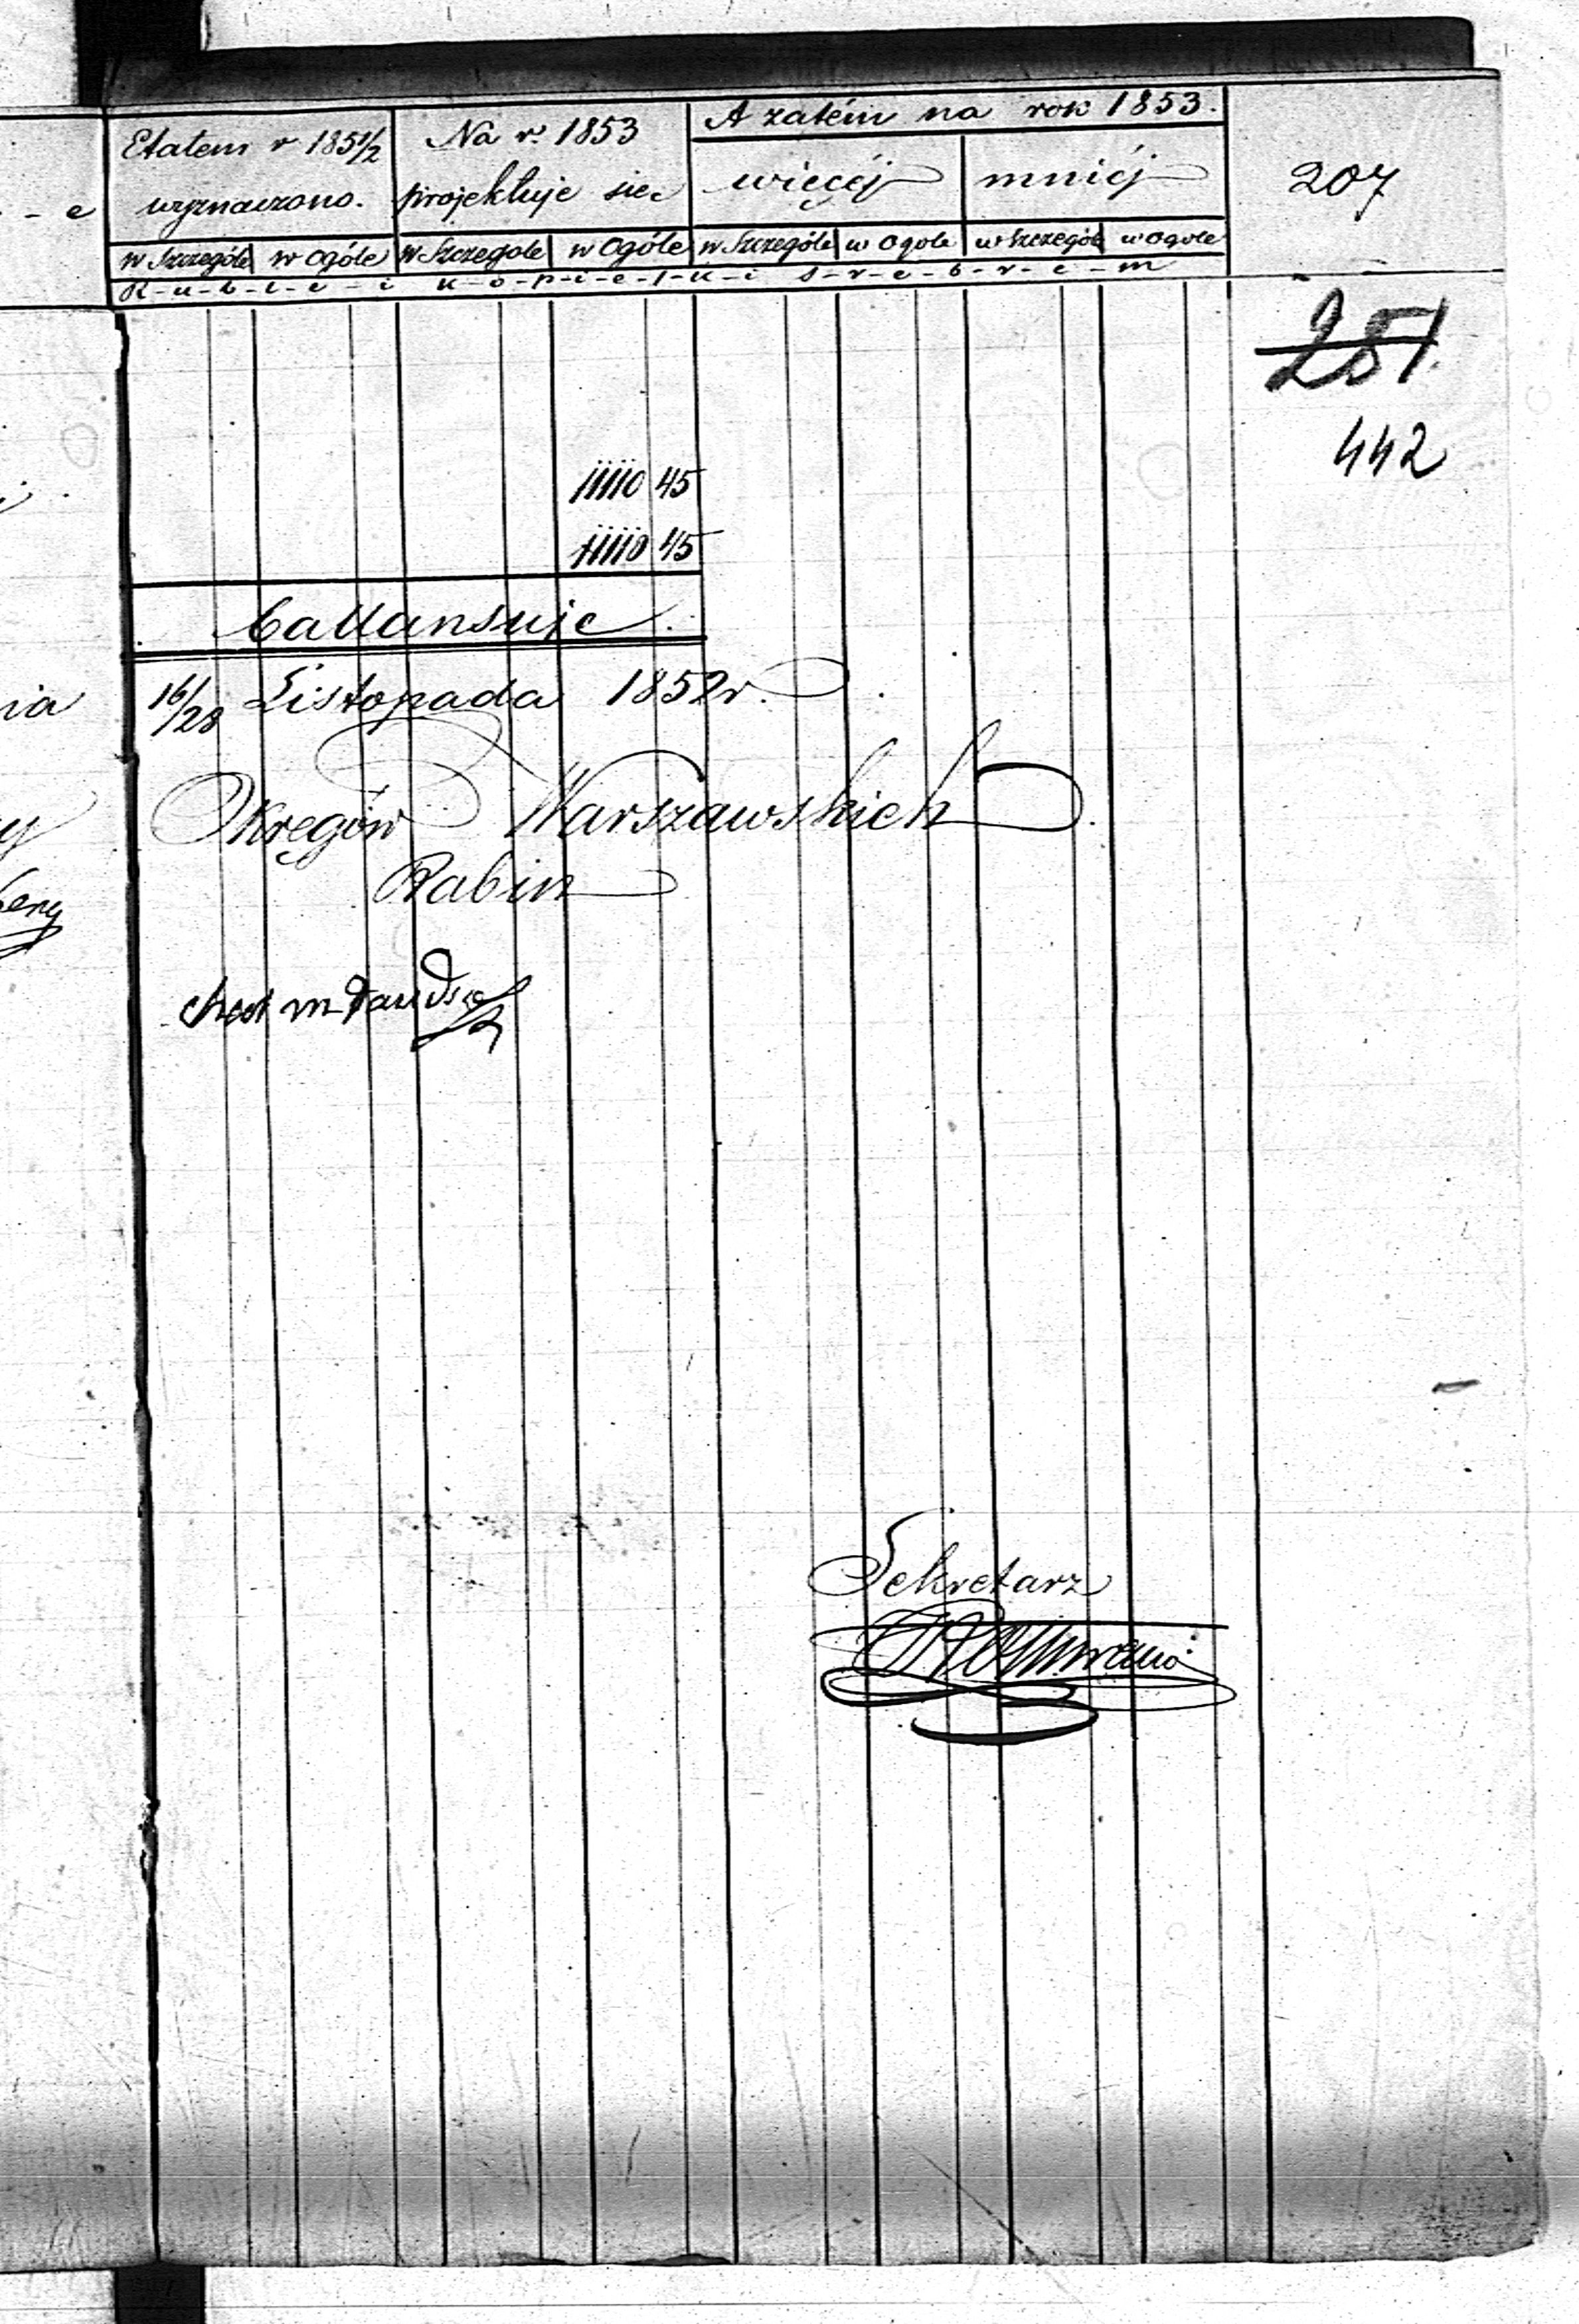 Etatem r 1851/2 wyznaczono.
Na r. 1853 projektuje się
A zatém na rok 1853.
więcéj
mniéj
207
w Szczególe w Ogóle w Szczegole w Ogóle w Szczególe w Ogole w Szczególe w Ogole
R-u-b-l-e-i k-o-p-i-e-j-k-i s-r-e-b-r-e-m
251
442
11110 45
11110 45
ballansuje
nia 16/28 Listopada 1852r.
Okręgów Warszawskich
Rabin
Sekretarz